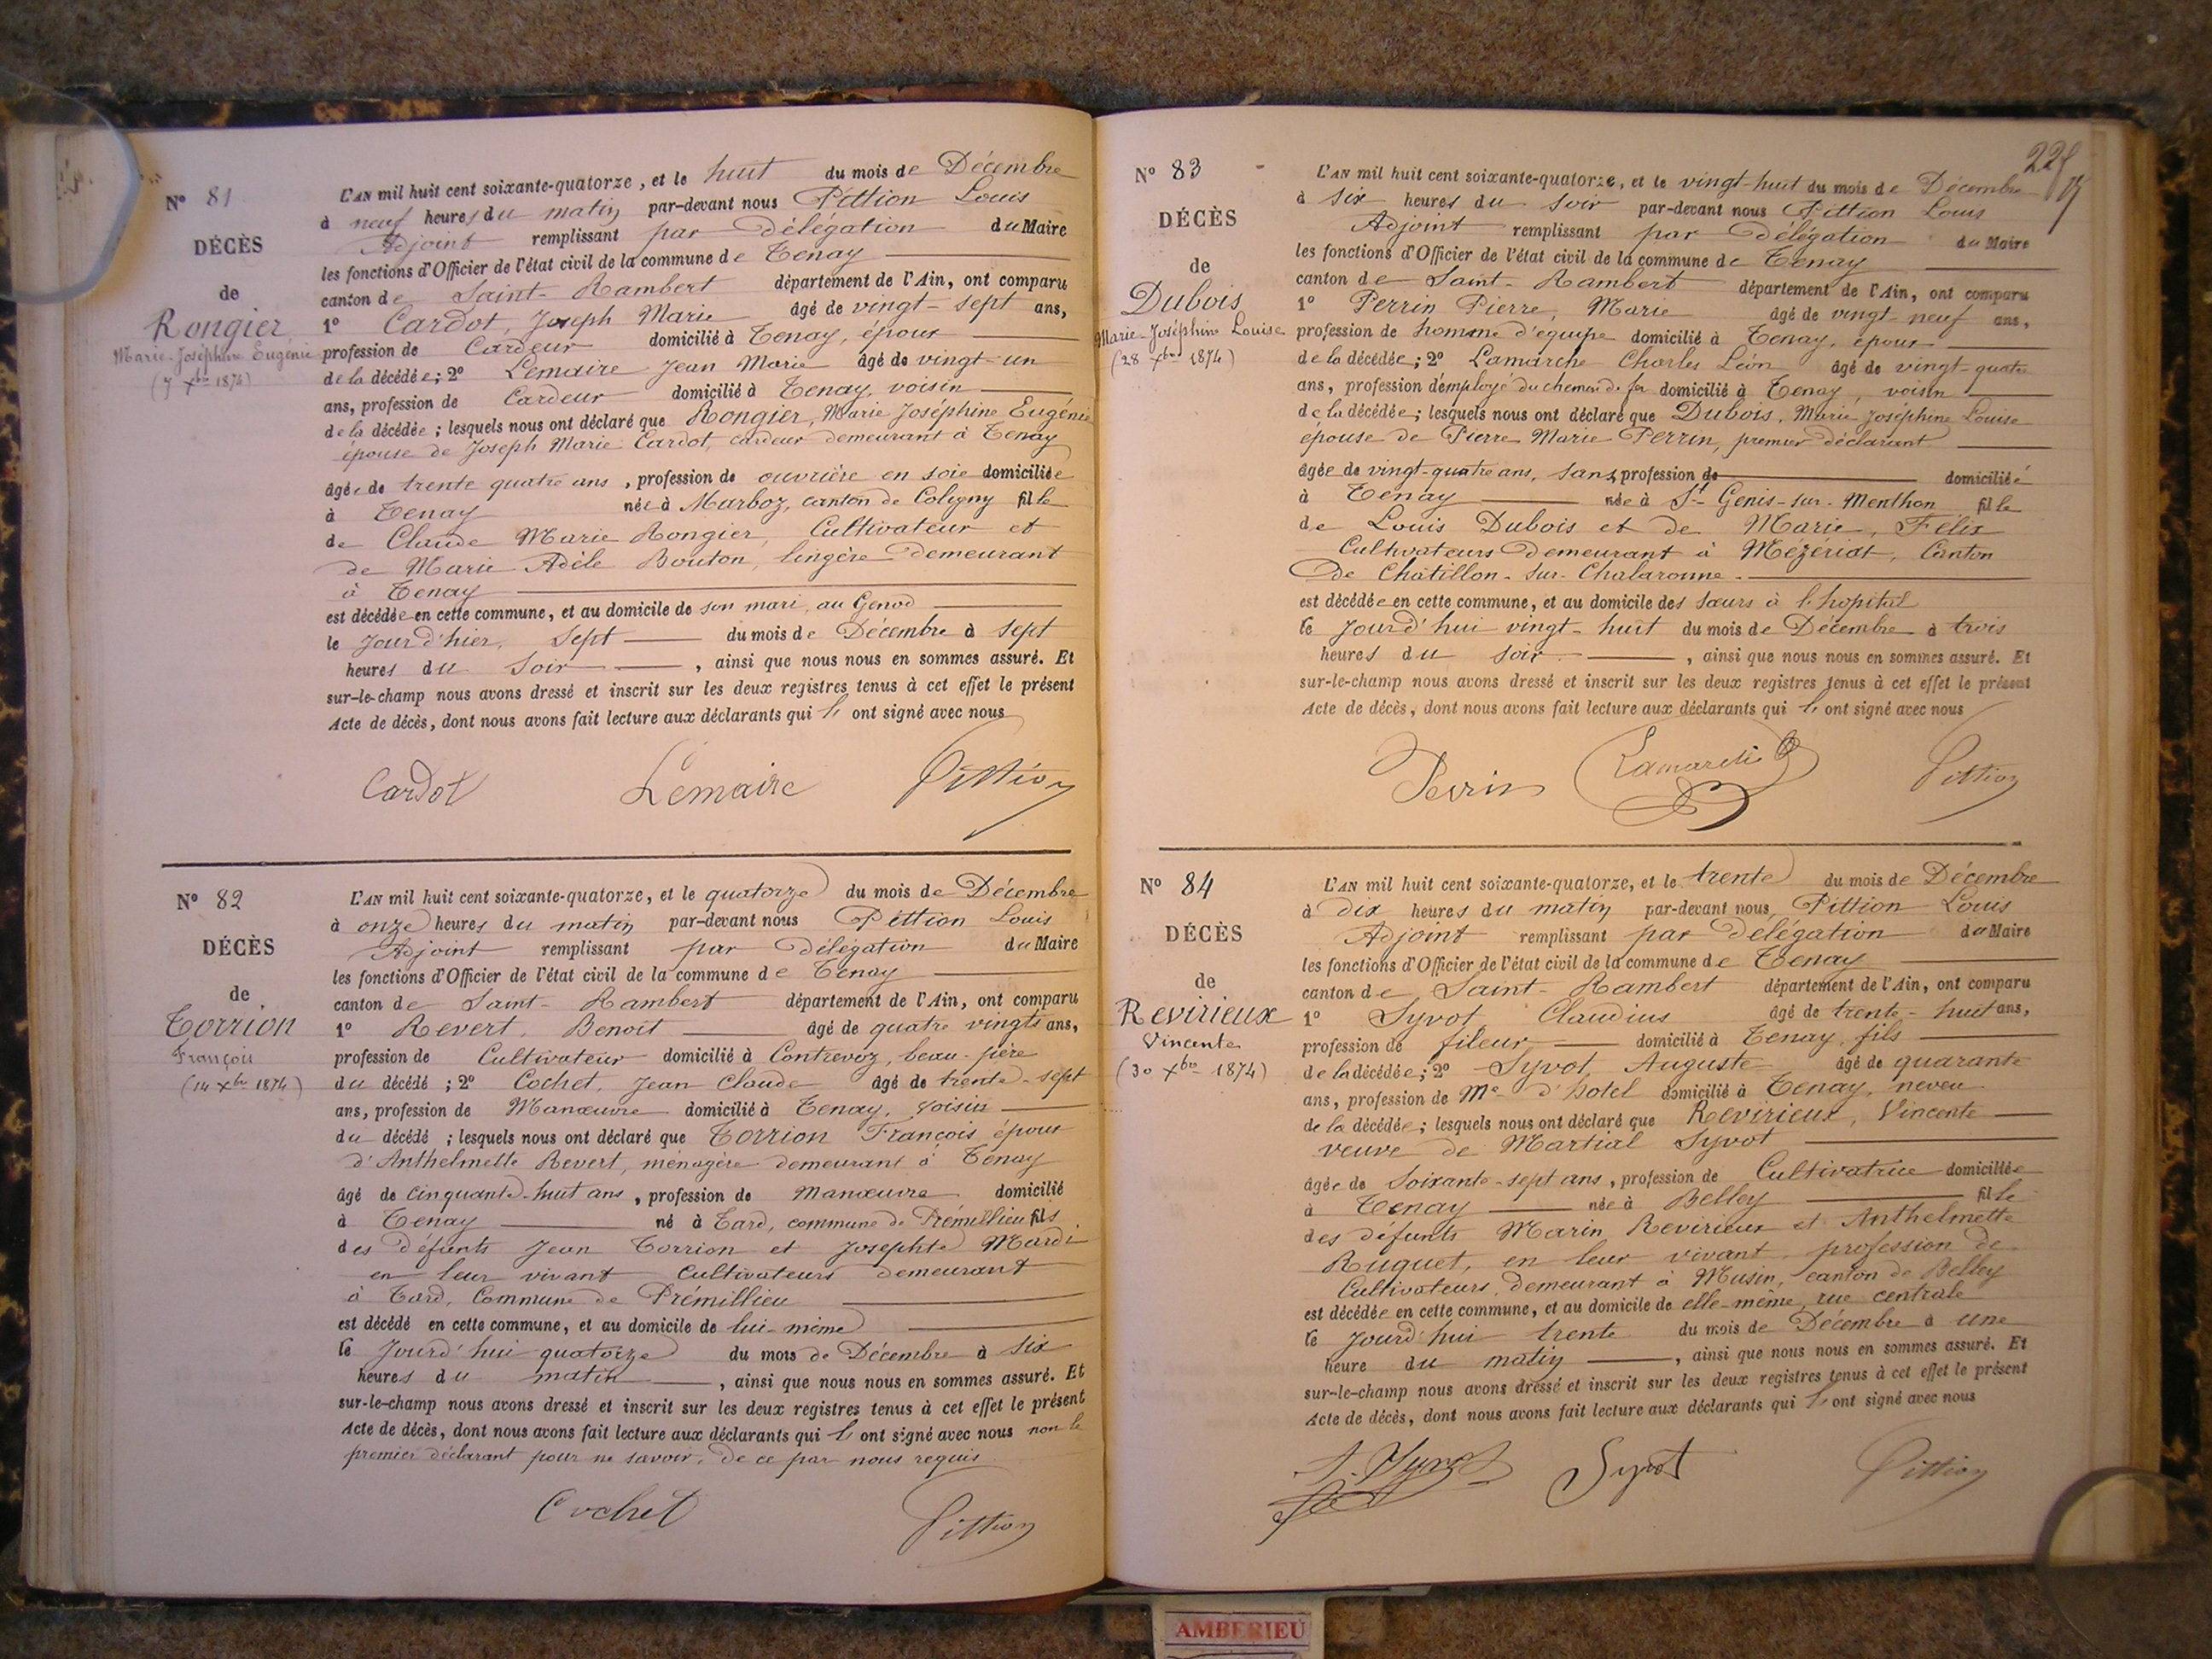 N° 81
DÉCÈS
de
Rongier
Marie-Joséphine Eugénie
(7 Xbre 1874)
L'AN mil huit cent soixante-quatorze, et le huit du mois de Décembre
à neuf heures du matin par-devant nous Pittion Louis
Adjoint remplissant par délégation du Maire
les fonctions d'Officier de l'état civil de la commune de Tenay
canton de Saint-Rambert département de l'Ain, ont comparu
1° Cardot, Joseph Marie âgé de vingt-sept ans,
profession de Cardeur domicilié à Tenay, époux
de la décédée; 2° Lemaire Jean Marie âgé de vingt-un
ans, profession de Cardeur domicilié à Tenay, voisin
de la décédée; lesquels nous ont déclaré que Rongier, Marie Joséphine Eugénie
épouse de Joseph Marie Cardot, cardeur demeurant à Tenay
âgée de trente quatre ans, profession de ouvrière en soie domiciliée
à Tenay née à Marboz, canton de Coligny fille
de Claude Marie Rongier, Cultivateur et
de Marie Adèle Bouton, lingère demeurant
à Tenay
est décédée en cette commune, et au domicile de son mari, au Genod
le jourd'hier, sept du mois de Décembre à sept
heures du soir, ainsi que nous nous en sommes assuré. Et
sur-le-champ nous avons dressé et inscrit sur les deux registres tenus à cet effet le présent
Acte de décès, dont nous avons fait lecture aux déclarants qui l' ont signé avec nous
Cardot Lemaire Pittion
N° 82
DÉCÈS
de
Torrion
François
(14 Xbre 1874)
L'AN mil huit cent soixante-quatorze, et le quatorze du mois de Décembre
à onze heures du matin par-devant nous Pittion Louis
Adjoint remplissant par délégation du Maire
les fonctions d'Officier de l'état civil de la commune de Tenay
canton de Saint-Rambert département de l'Ain, ont comparu
1° Revert, Benoit âgé de quatre vingts ans,
profession de Cultivateur domicilié à Contrevoz, beau-père
du décédé; 2° Cochet, Jean Claude âgé de trente-sept
ans, profession de Manœuvre domicilié à Tenay, voisin
du décédé; lesquels nous ont déclaré que Torrion François époux
d'Anthelmette Revert, ménagère demeurant à Tenay
âgé de cinquante-huit ans, profession de manœuvre domicilié
à Tenay né à Tard, commune de Prémillieu fils
des défunts Jean Torrion et Josephte Mardi
en leur vivant cultivateurs demeurant
à Tard, Commune de Prémillieu
est décédé en cette commune, et au domicile de lui-même
le jourd'hui quatorze du mois de Décembre à six
heures du matin, ainsi que nous nous en sommes assuré. Et
sur-le-champ nous avons dressé et inscrit sur les deux registres tenus à cet effet le présent
Acte de décès, dont nous avons fait lecture aux déclarants qui l' ont signé avec nous non le
premier déclarant pour ne savoir, de ce par nous requis.
Cochet Pittion
N° 83
DÉCÈS
de
Dubois
Marie-Joséphine Louise
(28 Xbre 1874)
L'AN mil huit cent soixante-quatorze, et le vingt-huit du mois de Décembre
à six heures du soir par-devant nous Pittion Louis
Adjoint remplissant par délégation du Maire
les fonctions d'Officier de l'état civil de la commune de Tenay
canton de Saint-Rambert département de l'Ain, ont comparu
1° Perrin Pierre, Marie âgé de vingt-neuf ans,
profession de homme d'équipe domicilié à Tenay, époux
de la décédée; 2° Lamarche Charles Léon âgé de vingt-quatre
ans, profession d'employé du chemin de fer domicilié à Tenay, voisin
de la décédée; lesquels nous ont déclaré que Dubois, Marie Joséphine Louise
épouse de Pierre Marie Perrin, premier déclarant
âgée de vingt-quatre ans, sans profession de domiciliée
à Tenay née à St Genis-sur-Menthon fille
de Louis Dubois et de Marie, Félix
Cultivateurs demeurant à Mézériat, Canton
de Châtillon-sur-Chalaronne.
est décédée en cette commune, et au domicile des sœurs à l'hopital
le jourd'hui vingt-huit du mois de Décembre à trois
heures du soir, ainsi que nous nous en sommes assuré. Et
sur-le-champ nous avons dressé et inscrit sur les deux registres tenus à cet effet le présent
Acte de décès, dont nous avons fait lecture aux déclarants qui l' ont signé avec nous
Perrin Lamarche Pittion
N° 84
DÉCÈS
de
Revirieux
Vincente
(30 Xbre 1874)
L'AN mil huit cent soixante-quatorze, et le trente du mois de Décembre
à dix heures du matin par-devant nous, Pittion Louis
Adjoint remplissant par délégation du Maire
les fonctions d'Officier de l'état civil de la commune de Tenay
canton de Saint-Rambert département de l'Ain, ont comparu
1° Syvot Claudius âgé de trente-huit ans,
profession de fileur domicilié à Tenay, fils
de la décédée; 2° Syvot, Auguste âgé de quarante
ans, profession de Me d'hotel domicilié à Tenay, neveu
de la décédée; lesquels nous ont déclaré que Revirieux, Vincente
veuve de Martial Syvot
âgée de soixante-sept ans, profession de Cultivatrice domiciliée
à Tenay née à Belley fille
des défunts Marin Revirieux et Anthelmette
Ruguet, en leur vivant profession de
Cultivateurs, demeurant à Musin, canton de Belley
est décédée en cette commune, et au domicile de elle-même, rue centrale
le jourd'hui trente du mois de Décembre à une
heure du matin, ainsi que nous nous en sommes assuré. Et
sur-le-champ nous avons dressé et inscrit sur les deux registres tenus à cet effet le présent
Acte de décès, dont nous avons fait lecture aux déclarants qui l' ont signé avec nous
A. Syvot Syvot Pittion
AMBERIEU